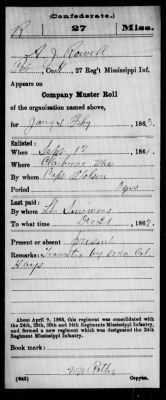 (Confederate.)
R 27 Miss.
A. J. Rowell
Pvt, Co. 27 Reg't Mississippi Inf.
Appears on
Company Muster Roll
of the organization named above,
for Jany & Feby, 1863.
Enlisted:
When Sept 17, 186
Where
By whom Capt
Period
Last paid:
By whom
To what time Dec 31, 1862.
Present or absent Present
Remarks: by order Col.
Hays
About April 9, 1865, this regiment was consolidated with
the 24th, 29th, 30th and 34th Regiments Mississippi Infantry,
and formed a new regiment which was designated the
24th Regiment Mississippi Infantry.
Book mark:
(642) Copyist.